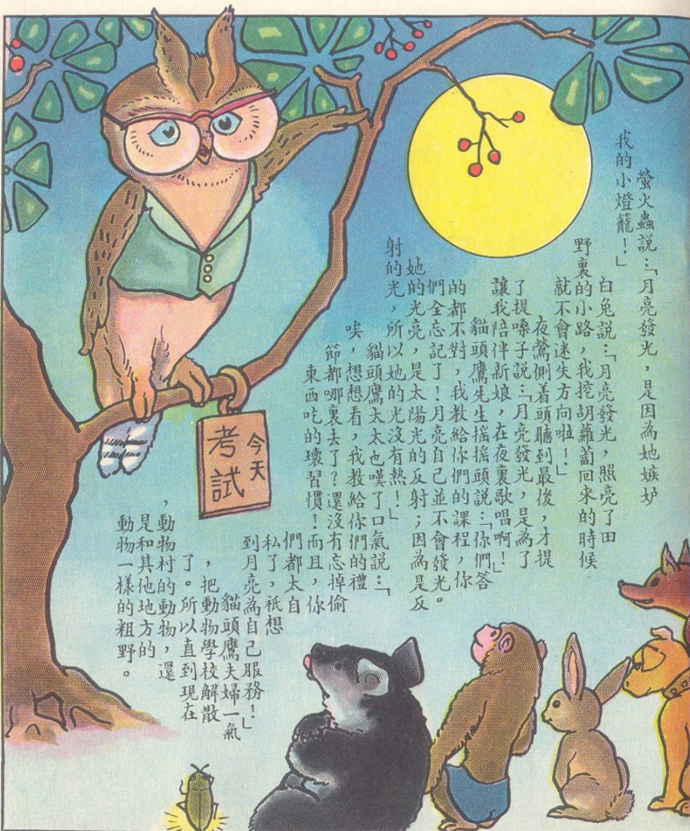 螢火蟲說:「月亮發光,是因為她嫉妒
我的小燈籠!」
白兔說:「月亮發光,照亮了田
野裏的小路,我挖胡蘿蔔回來的時候
就不會迷失方向啦!」
夜鶯側着頭聽到最後,才提
了提嗓子說:「月亮發光,是為了
讓我陪伴新娘,在夜裏歌唱啊!」
貓頭鷹先生搖搖頭說:「你們答
的都不對,我教給你們的課程,你
們全忘記了!月亮自己並不會發光。
她的光亮,是太陽光的反射;因為是反
射的光,所以她的光沒有熱!」
貓頭鷹太太也嘆了口氣說:「
唉,想想看,我教給你們的禮
節都哪裏去了?還沒有忘掉偷
東西吃的壞習慣!而且,你
們都太自
私了,祇想
到月亮為自己服務!」
貓頭鷹夫婦一氣
,把動物學校解散
了。所以直到現在
,動物村的動物,還
是和其他地方的
動物一樣的粗野。
今天
考試